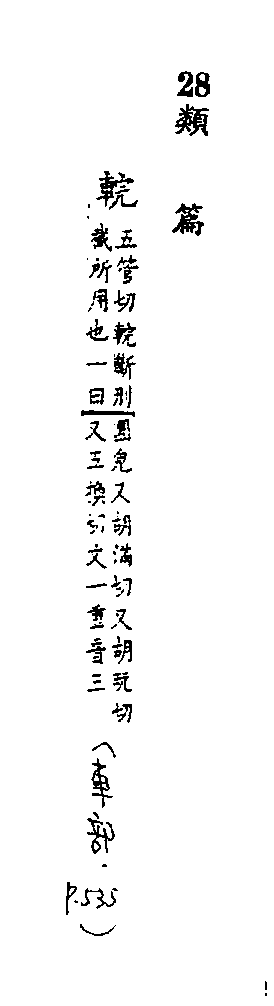 28
類篇
輐
五管切輐斷刓圜皃又胡滿切又胡玩切
截所用也一曰又五換切文一重音三
(車部.
P.535)